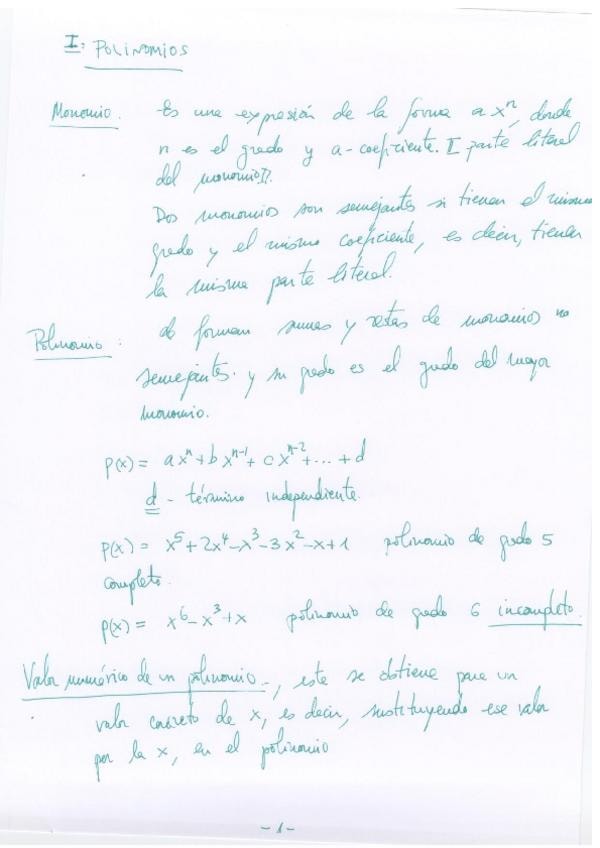 I. POLINOMIOS
Monomio. Es una expresión de la forma a xⁿ, donde
n es el grado y a-coeficiente. I parte literal
del monomio II.
Dos monomios son semejantes si tienen el mismo
grado y el mismo coeficiente, es decir, tienen
la misma parte literal.
Polinomio: lo forman sumas y restas de monomios no
semejantes. y su grado es el grado del mayor
monomio.
P(x) = a xⁿ + b xⁿ⁻¹ + c xⁿ⁻² + ... + d
d - término independiente.
P(x) = x⁵ + 2x⁴ - x³ - 3x² - x + 1 polinomio de grado 5
completo.
P(x) = x⁶ - x³ + x polinomio de grado 6 incompleto.
Valor numérico de un polinomio -, este se obtiene para un
valor concreto de x, es decir, sustituyendo ese valor
por la x, en el polinomio
- 1 -